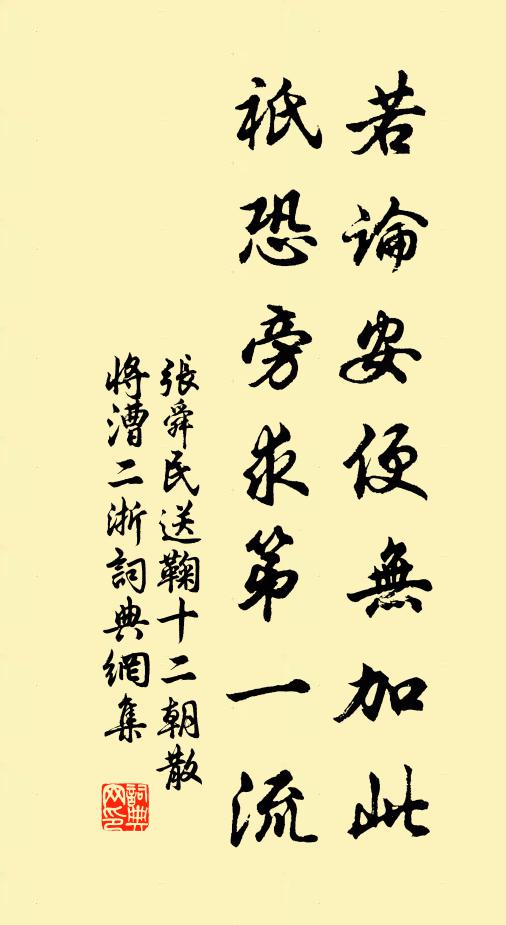 若論安便無加此
祇恐旁求第一流
張舜民送鞠十二朝散
將漕二浙詞典網集
詞典
网印